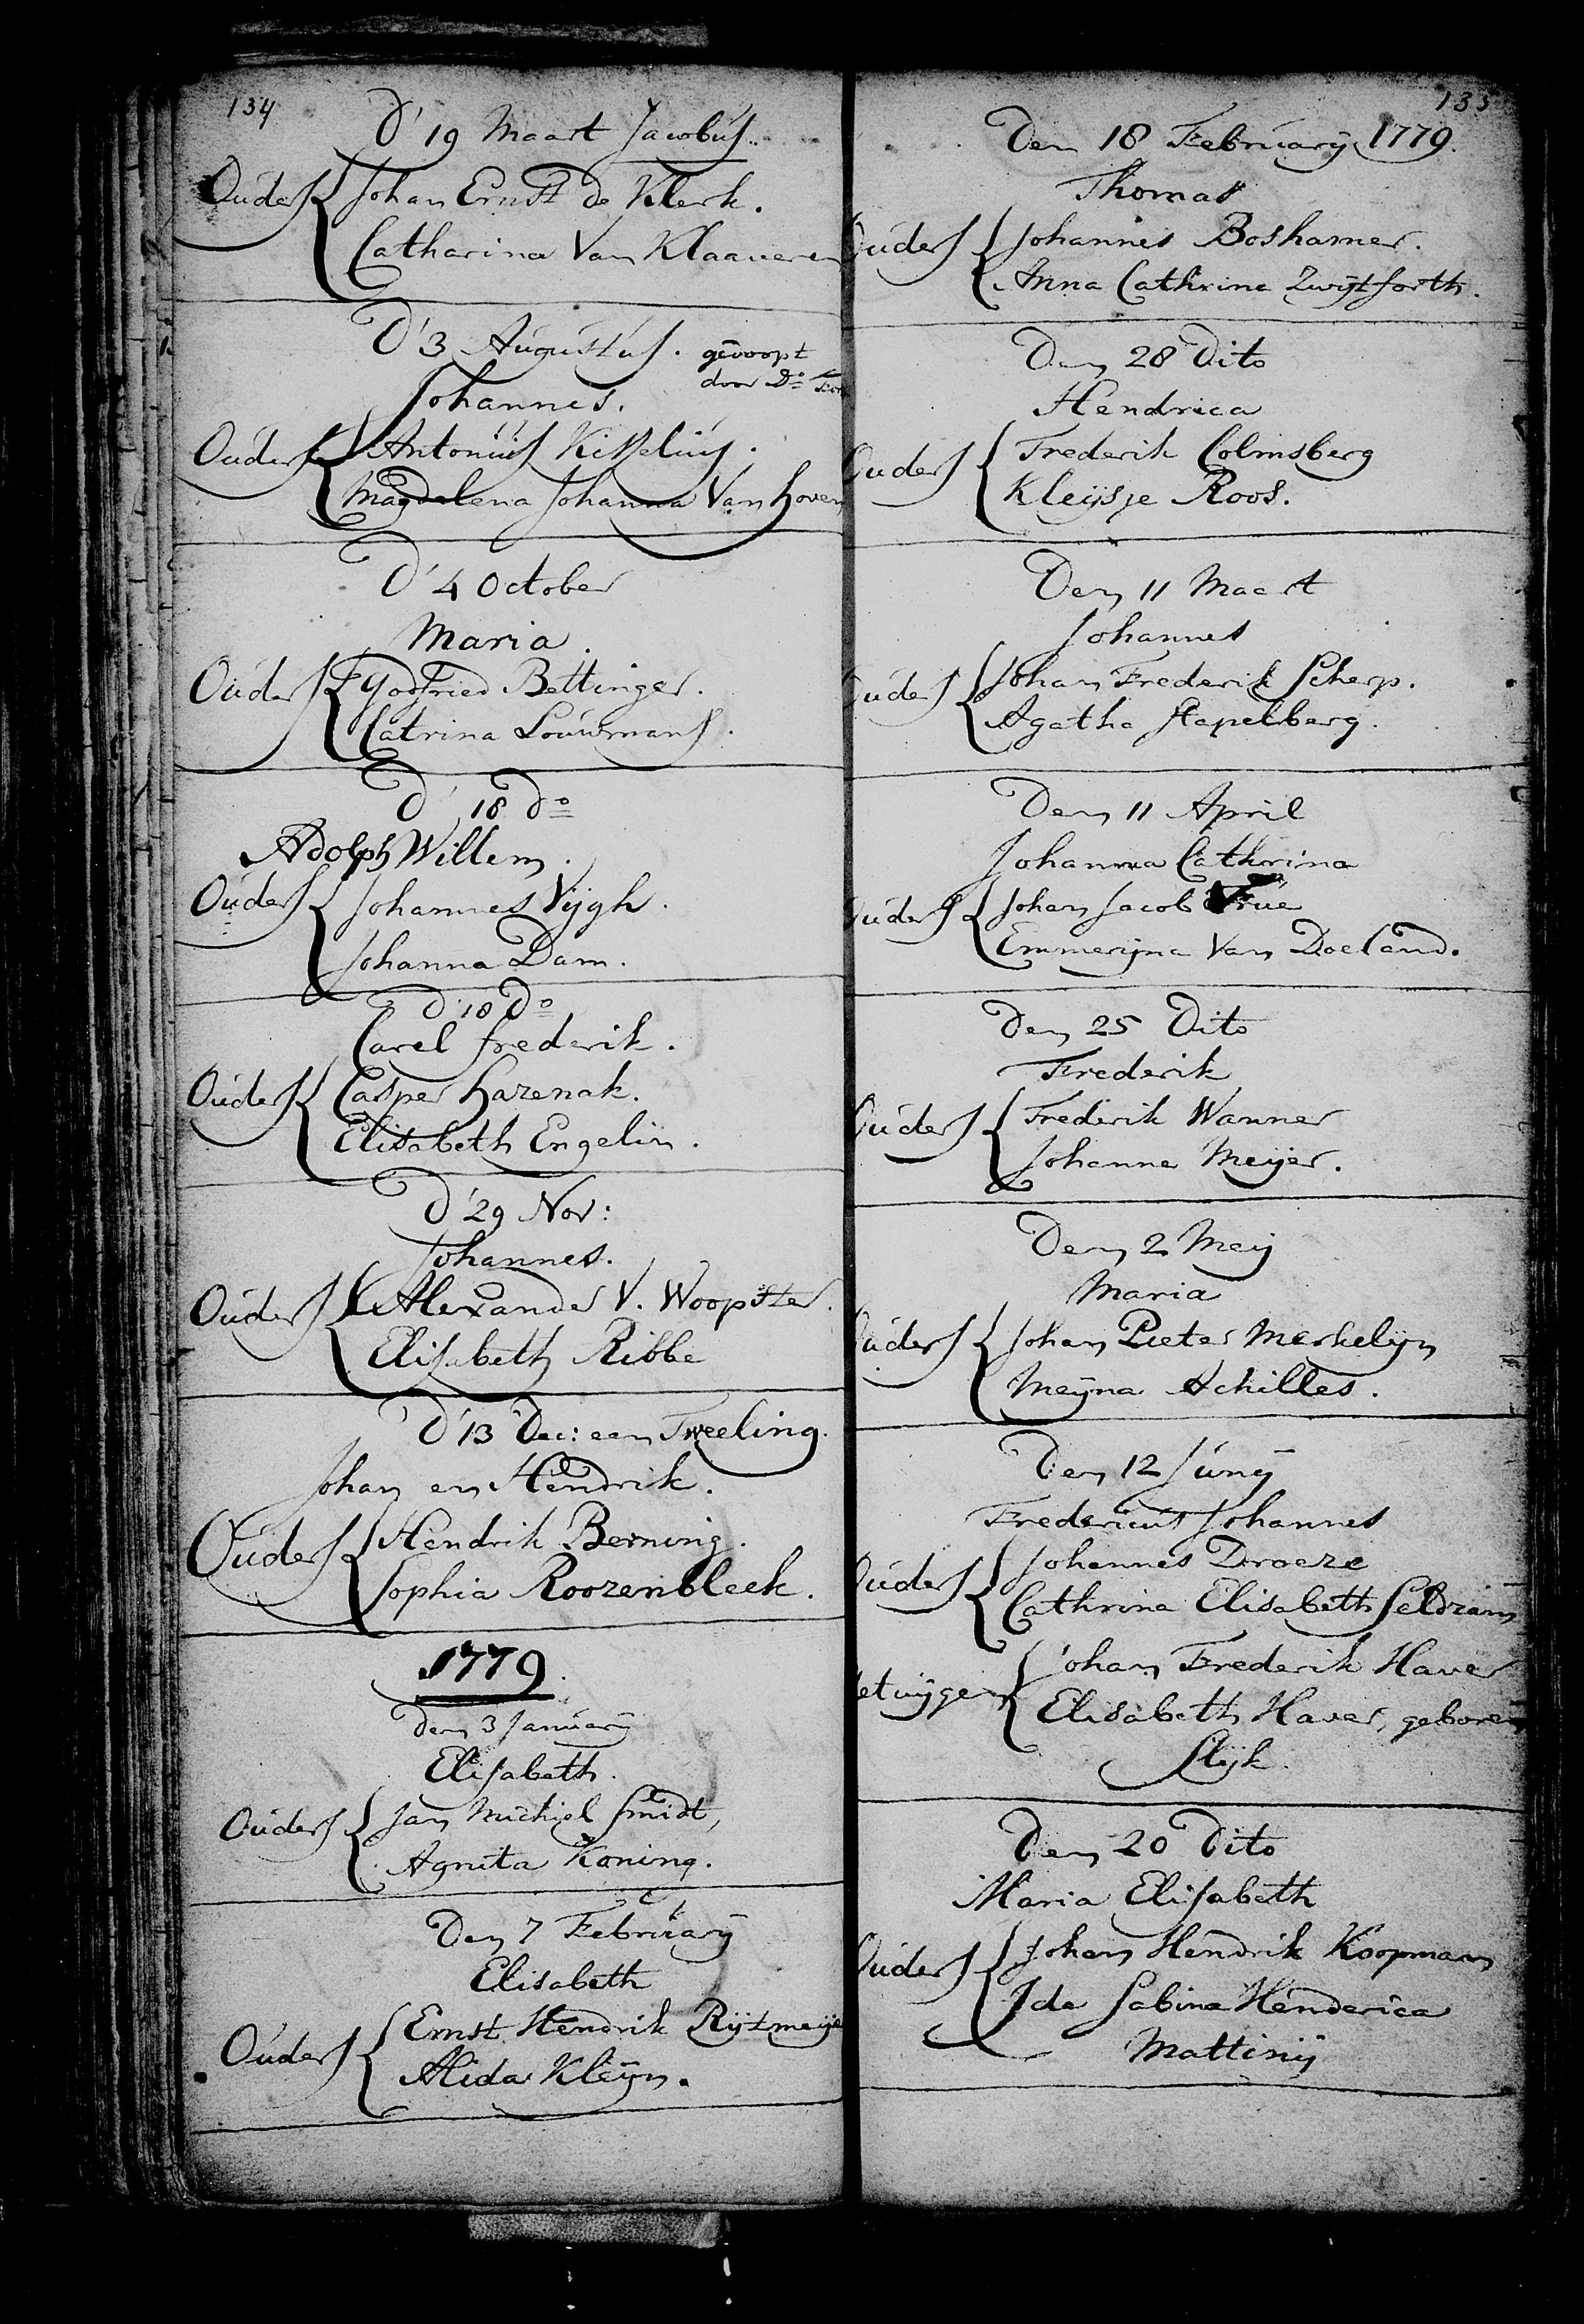 134
D' 19 Maart Jacobus.
Ouders Johan Ernst de Klerk.
Catharina Van Klaaveren
D' 3 Augustus. gedoopt
door Ds
Johannes.
Ouders Antonius Kisselius.
Magdalena Johanna Van hoven
D' 4 October
Maria.
Ouders Godfried Bettinger.
Catrina Louwmans.
D' 18 do
Adolph Willem.
Ouders Johannes Vijgh.
Johanna Dam.
D' 18 Do
Carel frederik.
Ouders Casper hazenak.
Elisabeth Engelin.
D' 29 Nov:
Johannes.
Ouders Alexander V. Woopster.
Elisabeth Ribbe
D' 13 Dec: een Tweeling.
Johan en Hendrik.
Ouders Hendrik Berning.
Sophia Roozenbleek.
1779.
Den 3 January
Elisabeth.
Ouders Jan Michiel Smidt,
Agnita Koning.
Den 7 February
Elisabeth
Ouders Ernst Hendrik Rijtmeije
Alida Kleijn.
135
Den 18 February 1779.
Thomas
Ouders Johannes Boshamer.
Anna Cathrina Zwijtforth.
Den 28 Dito
Hendrica
Ouders Frederik Colmsberg
Kleijsje Roos.
Den 11 Maart
Johannes
Ouders Johan Frederik Scherp.
Agatha Stapelberg.
Den 11 April
Johanna Cathrina
Ouders Johan Jacob Frue
Emmerijna Van Doeland.
Den 25 Dito
Frederik
Ouders Frederik Wanner
Johanna Meijer.
Den 2 Meij
Maria
Ouders Johan Pieter Merkelijn
Meijna Achilles.
Den 12 Junij
Fredericus Johannes
Ouders Johannes Droeze
Cathrina Elisabeth Seldram
Getuijgen Johan Frederik Haver
Elisabeth Haver, geboren
Slijk.
Den 20 Dito
Maria Elisabeth
Ouders Johan Hendrik Koopman
Ida Sabina Henderica
Mattinij